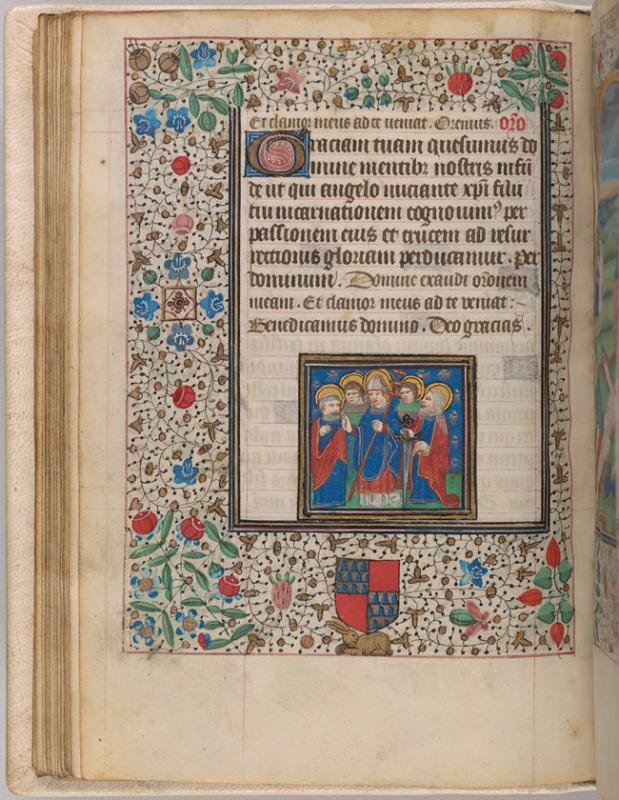 Et clamor meus ad te veniat. Oremus. or̃o
Graciam tuam quesumus do
mine mentibz nostris infũ
de ut qui angelo nunciante xp̃i filii
tui incarnationem cognouimꝰ per
passionem eius et crucem ad resur
rectionis gloriam perducamur. Per
dominum. Domine exaudi or̃onem
meam. Et clamor meus ad te veniat:
Benedicamus domino. Deo gracias.